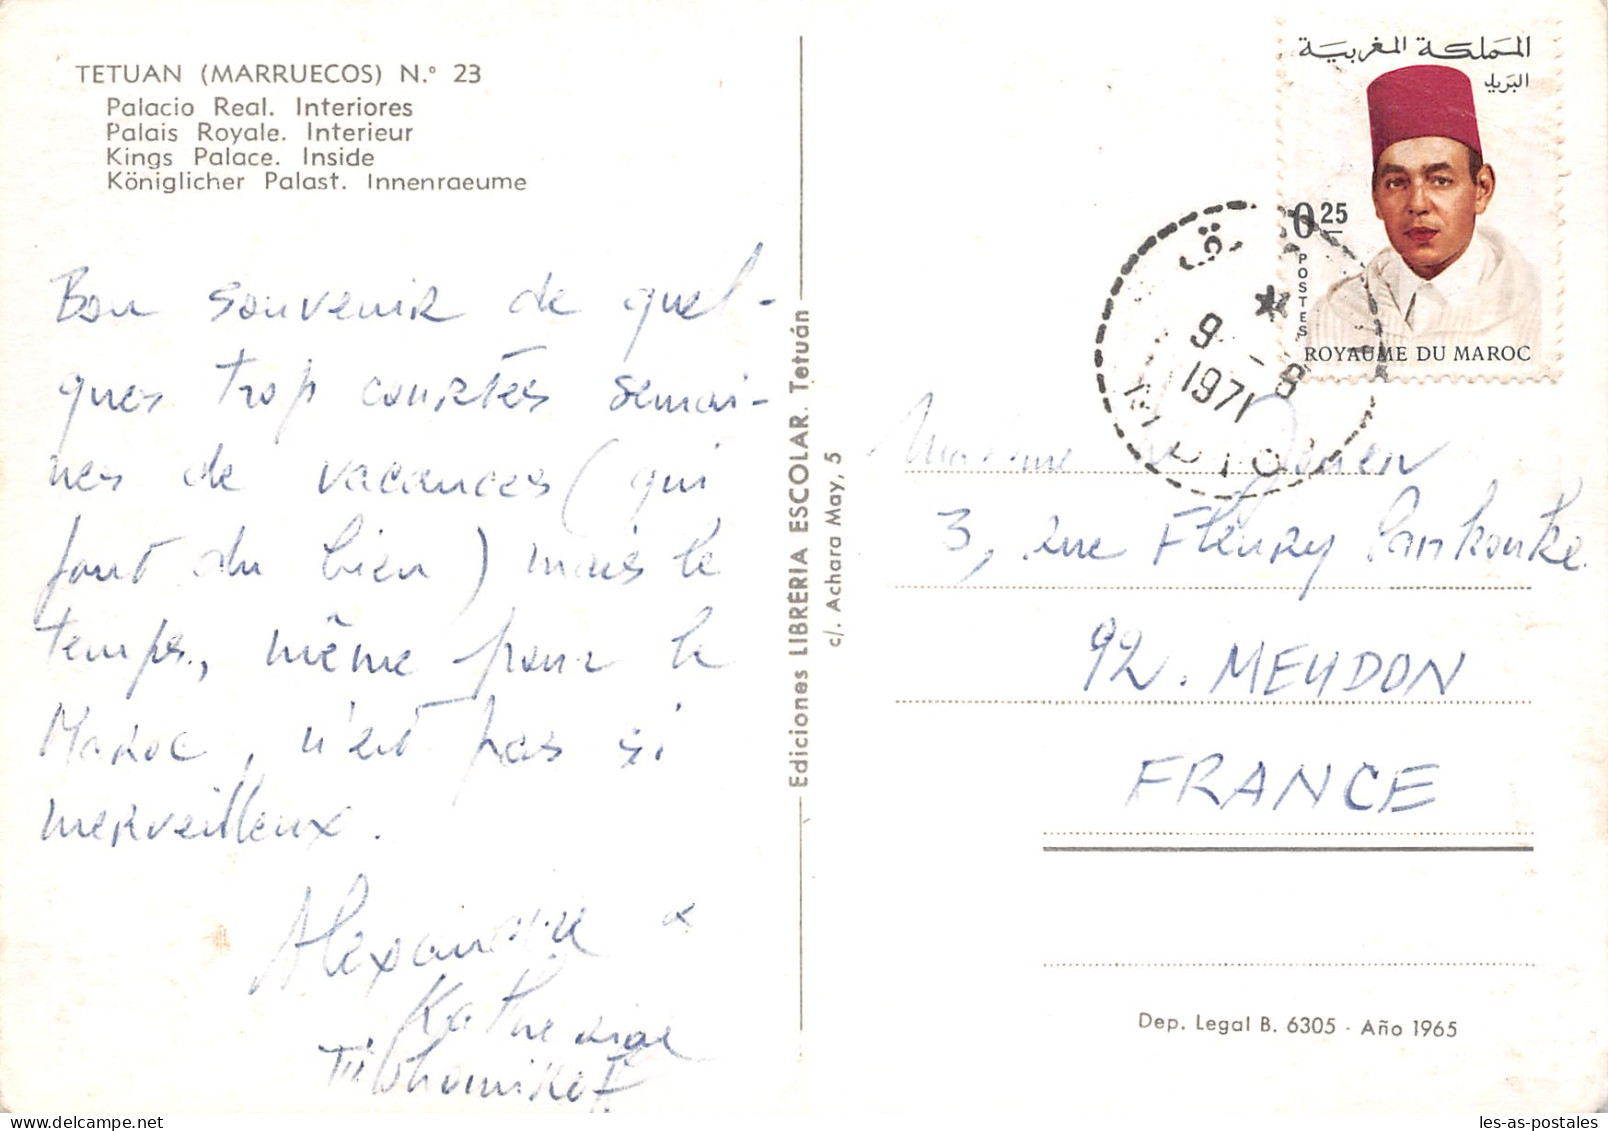 TETUAN (MARRUECOS) N.º 23
Palacio Real. Interiores
Palais Royale. Interieur
Kings Palace. Inside
Königlicher Palast. Innenraeume
Bon souvenir de quel-
ques trop courtes semai-
nes de vacances (qui
font du bien) mais le
temps, même pour le
Maroc, n'est pas si
merveilleux.
Alexandre &
Katherine
Ediciones LIBRERIA ESCOLAR. Tetuán
c/. Achara May, 5
المملكة المغربية
البريد
0.25
POSTES
ROYAUME DU MAROC
9 - 8
1971
Madame
3, rue Fleury Pankouke
92. MEUDON
FRANCE
Dep. Legal B. 6305 - Año 1965
les-as-postales